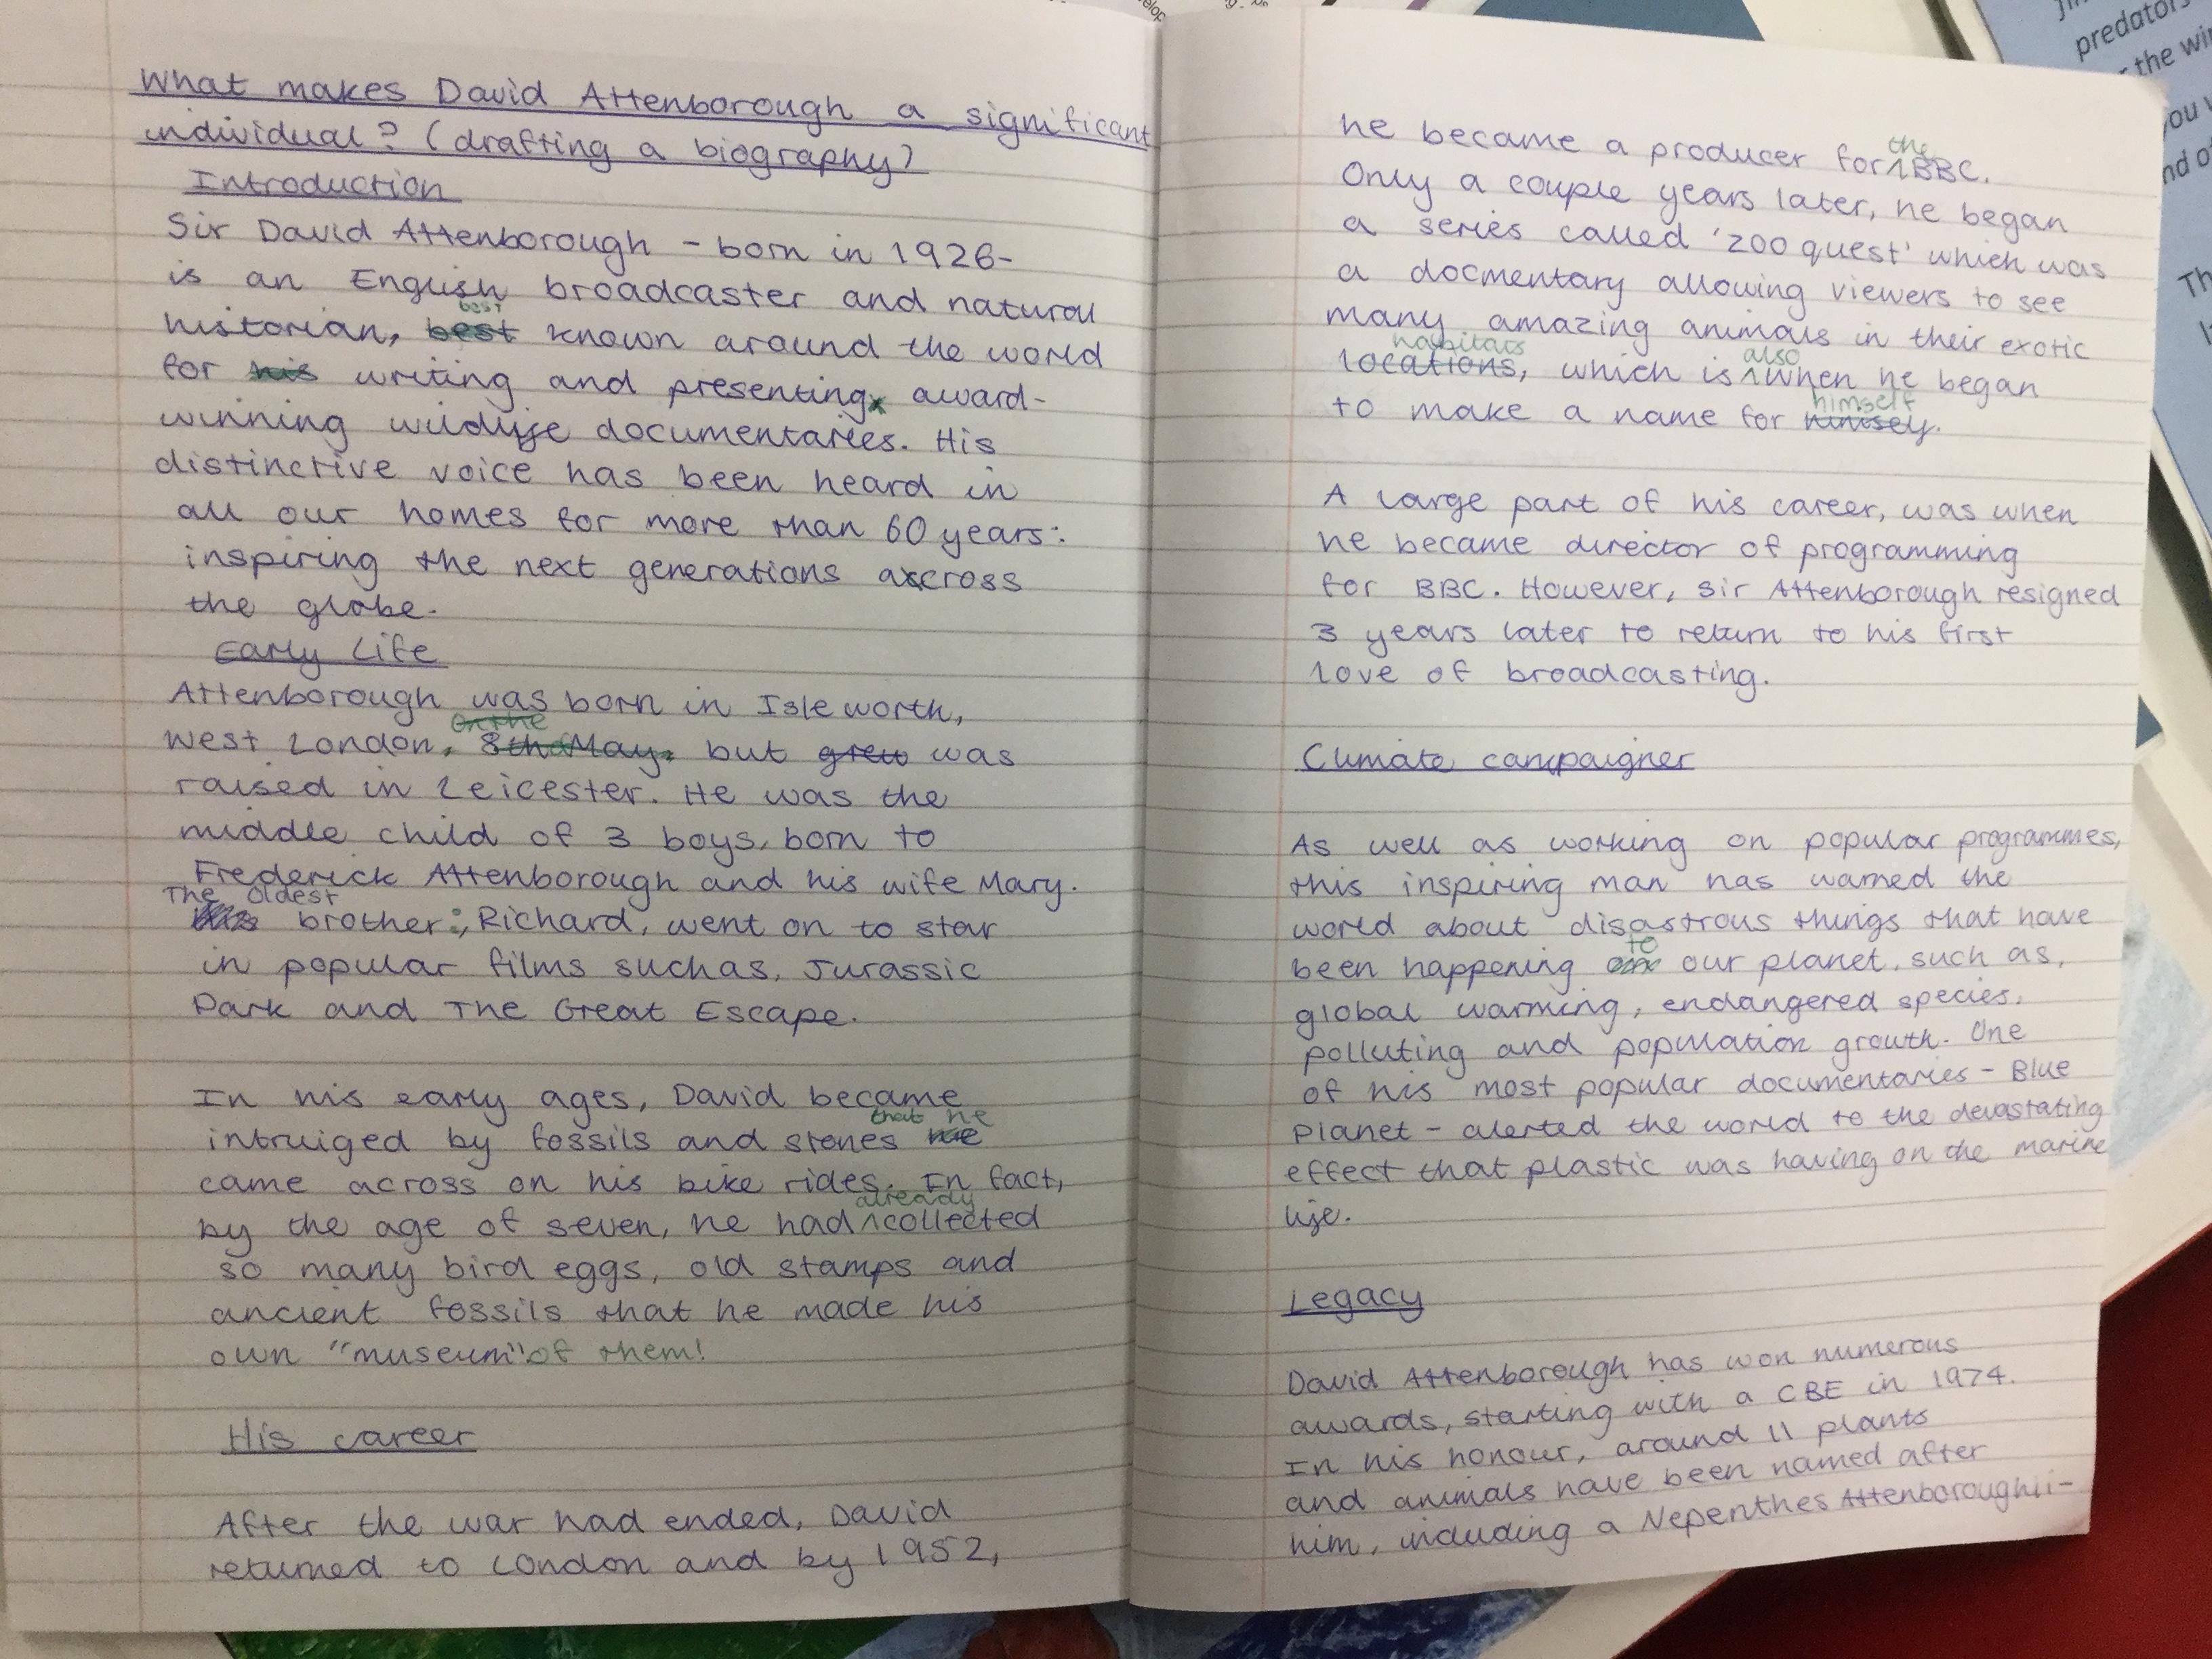 What makes David Attenborough a significant
individual? (drafting a biography)
Introduction
Sir David Attenborough - born in 1926-
is an English broadcaster and natural
best
historian, best known around the world
for his writing and presenting award-
winning wildlife documentaries. His
distinctive voice has been heard in
all our homes for more than 60 years:
inspiring the next generations across
the globe.
Early Life
Attenborough was born in Isleworth,
on the
West London, 8th May, but grew was
raised in Leicester. He was the
middle child of 3 boys, born to
Frederick Attenborough and his wife Mary.
The oldest
brother, Richard, went on to star
in popular films such as, Jurassic
Park and The Great Escape.
In his early ages, David became
that he
intruiged by fossils and stones
came across on his bike rides. In fact,
already
by the age of seven, he had ^collected
so many bird eggs, old stamps and
ancient fossils that he made his
own "museum" of them!
His career
After the war had ended, David
returned to London and by 1952,
he became a producer for ^BBC.
the
Only a couple years later, he began
a series called 'zoo quest' which was
a docmentary allowing viewers to see
many amazing animals in their exotic
habitats also
locations, which is ^when he began
himself
to make a name for himsely.
A large part of his career, was when
he became director of programming
for BBC. However, Sir Attenborough resigned
3 years later to return to his first
love of broadcasting.
Climate campaigner
As well as working on popular programmes,
this inspiring man has warned the
world about disastrous things that have
to
been happening our planet, such as,
global warming, endangered species,
polluting and population growth. One
of his most popular documentaries - Blue
Planet - alerted the world to the devastating
effect that plastic was having on the marine
life.
Legacy
David Attenborough has won numerous
awards, starting with a CBE in 1974.
In his honour, around 11 plants
and animals have been named after
him, including a Nepenthes Attenboroughii-
predators
the win
you
nd of
Th